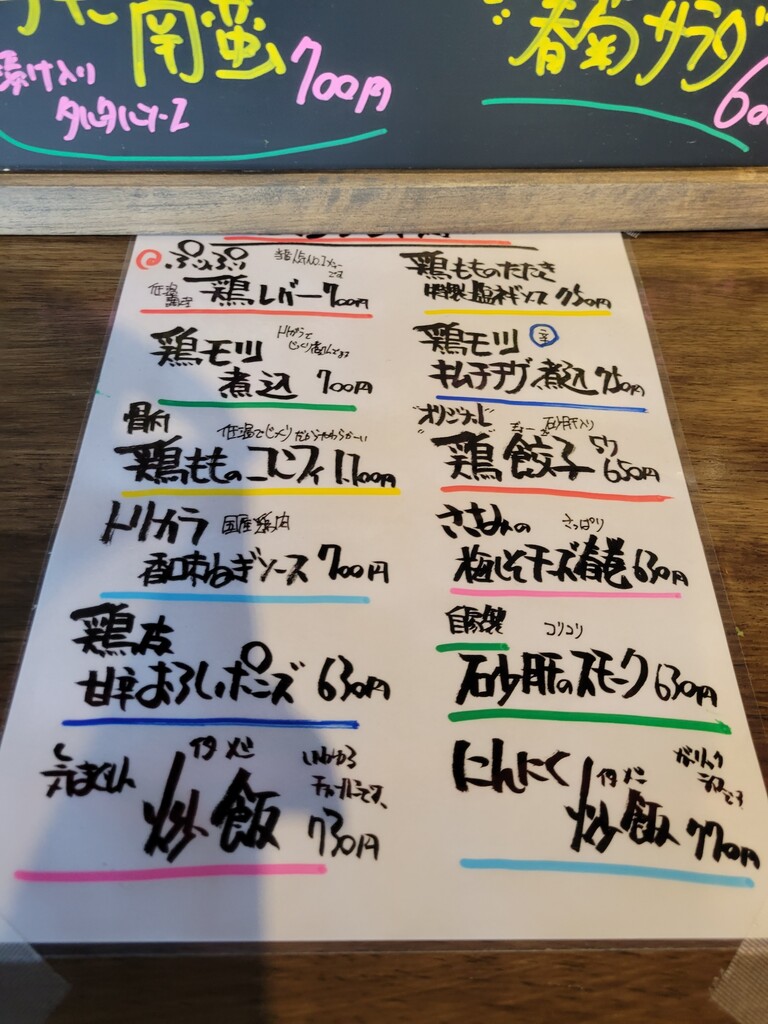 南蛮
漬け入り
タルタルソース
700円
春菊サラダ
ぷりぷり
当店人気No.1メニュー
です
低温
調理
鶏レバー 700円
鶏もものたたき
特製塩ネギソース 750円
鶏モツ
トリガラで
じっくり煮込んでます
煮込 700円
鶏モツ
キムチチゲ煮込 750円
骨付
低温でじっくりだからやわらかーい
鶏ももの コンフィ 1.100円
"オリジナル"
砂肝入り
鶏餃子 650円
トリカラ 国産鶏肉
香味ねぎソース 700円
ささみの さっぱり
梅しそチーズ春巻 630円
鶏皮
甘辛おろしポンズ 630円
自家製 コリコリ
石砂肝のスモーク 630円
イタメシ
いわゆる
炒飯
730円
にんにく
イタメシ
ガーリック
炒飯 770円